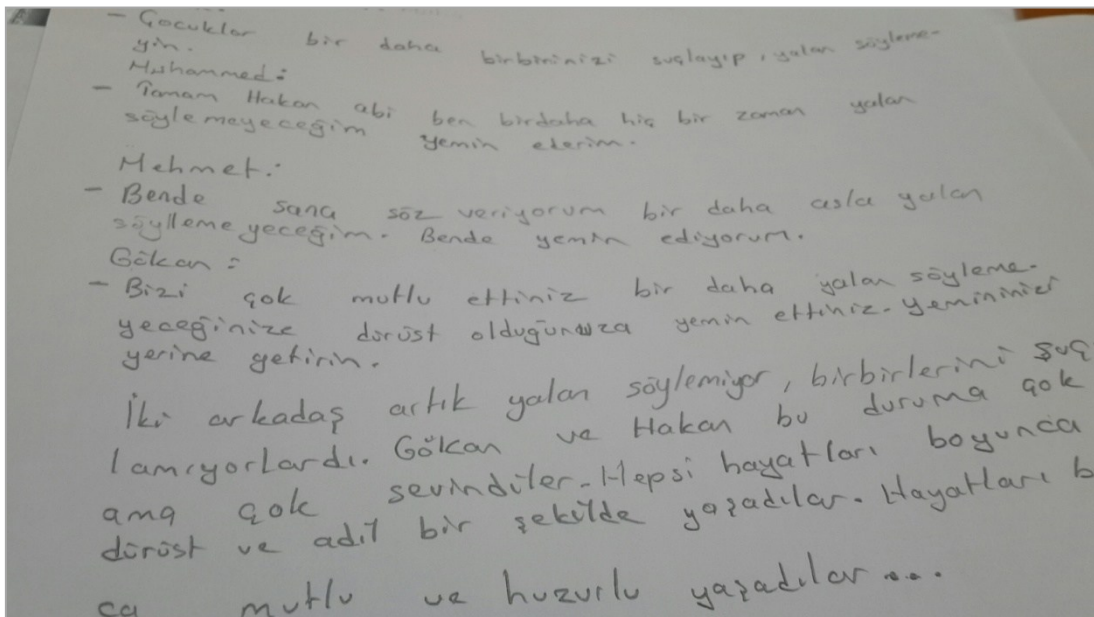 - Çocuklar bir daha birbirinizi suçlayıp, yalan söyleme-
yin.
Muhammed:
- Tamam Hakan abi ben birdaha hiç bir zaman yalan
söylemeyeceğim yemin ederim.
Mehmet:
- Bende sana söz veriyorum bir daha asla yalan
söylleme yeceğim. Bende yemin ediyorum.
Gökan:
- Bizi çok mutlu ettiniz bir daha yalan söyleme-
yeceğinize dürüst olduğunuza yemin ettiniz. yemininizi
yerine getirin.
İki arkadaş artık yalan söylemiyor, birbirlerini suç
lamıyorlardı. Gökan ve Hakan bu duruma çok
ama çok sevindiler. Hepsi hayatları boyunca
dürüst ve adil bir şekilde yaşadılar. Hayatları b
ca mutlu ve huzurlu yaşadılar...